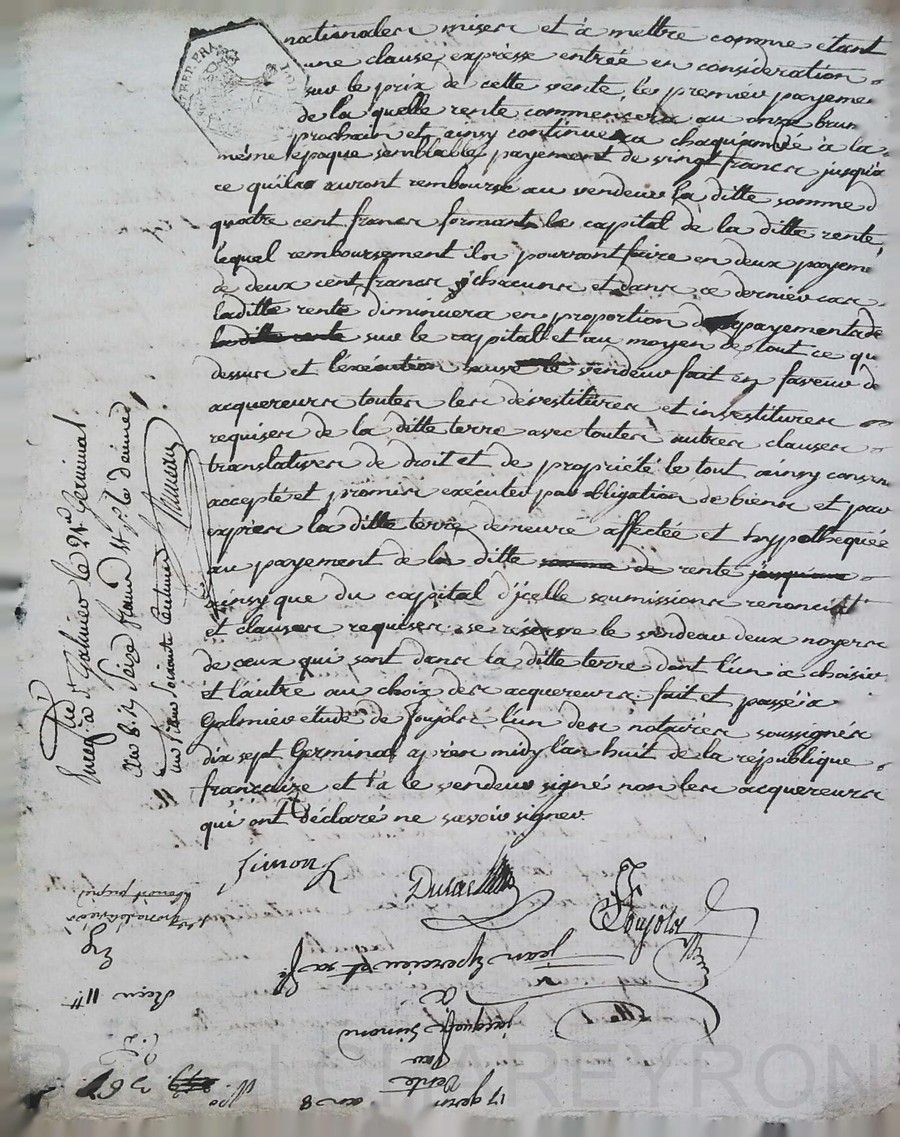 nationales mises et à mettre comme étant
une clause expresse entrée en consideration
sur le prix de cette vente, le premier payeme
de la quelle rente commencera au onze brum
prochain et ainsy continuera chaque année à la
même époque semblable payement de vingt francs jusqu'à
ce quils auront remboursé au vendeur la ditte somme d
quatre cent francs formant le capital de la ditte rente,
lequel remboursement ils pourront faire en deux payeme
de deux cent francs chacuns et dans ce dernier cas
laditte rente diminuera en proportion du payement de
la ditte rente sur le capital et au moyen de tout ce qu
dessus et l'exécution sauve le vendeur fait en faveur de
acquereurs toutes les dévestitures et investitures
requises de la ditte terre avec toutes autres clauses
translatives de droit et de propriété le tout ainsy conven
accepté et promis exécuter par obligation de biens et par
exprès la ditte terre demeure affectée et hypothequée
au payement de la ditte somme de rente jusqu'au
ainsy que du capital d'jcelle soumissions renonciat
et clauses requises se réserve le vendeur deux noyers
de ceux qui sont dans la ditte terre dont l'un à choisir
et l'autre au choix des acquereurs : fait et passé à
Galmier etude de Foujols l'un des notaires soussignés
dix sept Germinal après midy l'an huit de la république
françaize et t'a le vendeur signé non les acquereurs
qui ont déclaré ne savoir signer
Simon
Foujols
Enregé à St Galmier le 24 Germinal
an 8. Reçu Seize francs
un franc soixante centimes
Reçu 11
jean et sa fe
à
jacques Simond
par
Vente
17 germ an 8
No 36